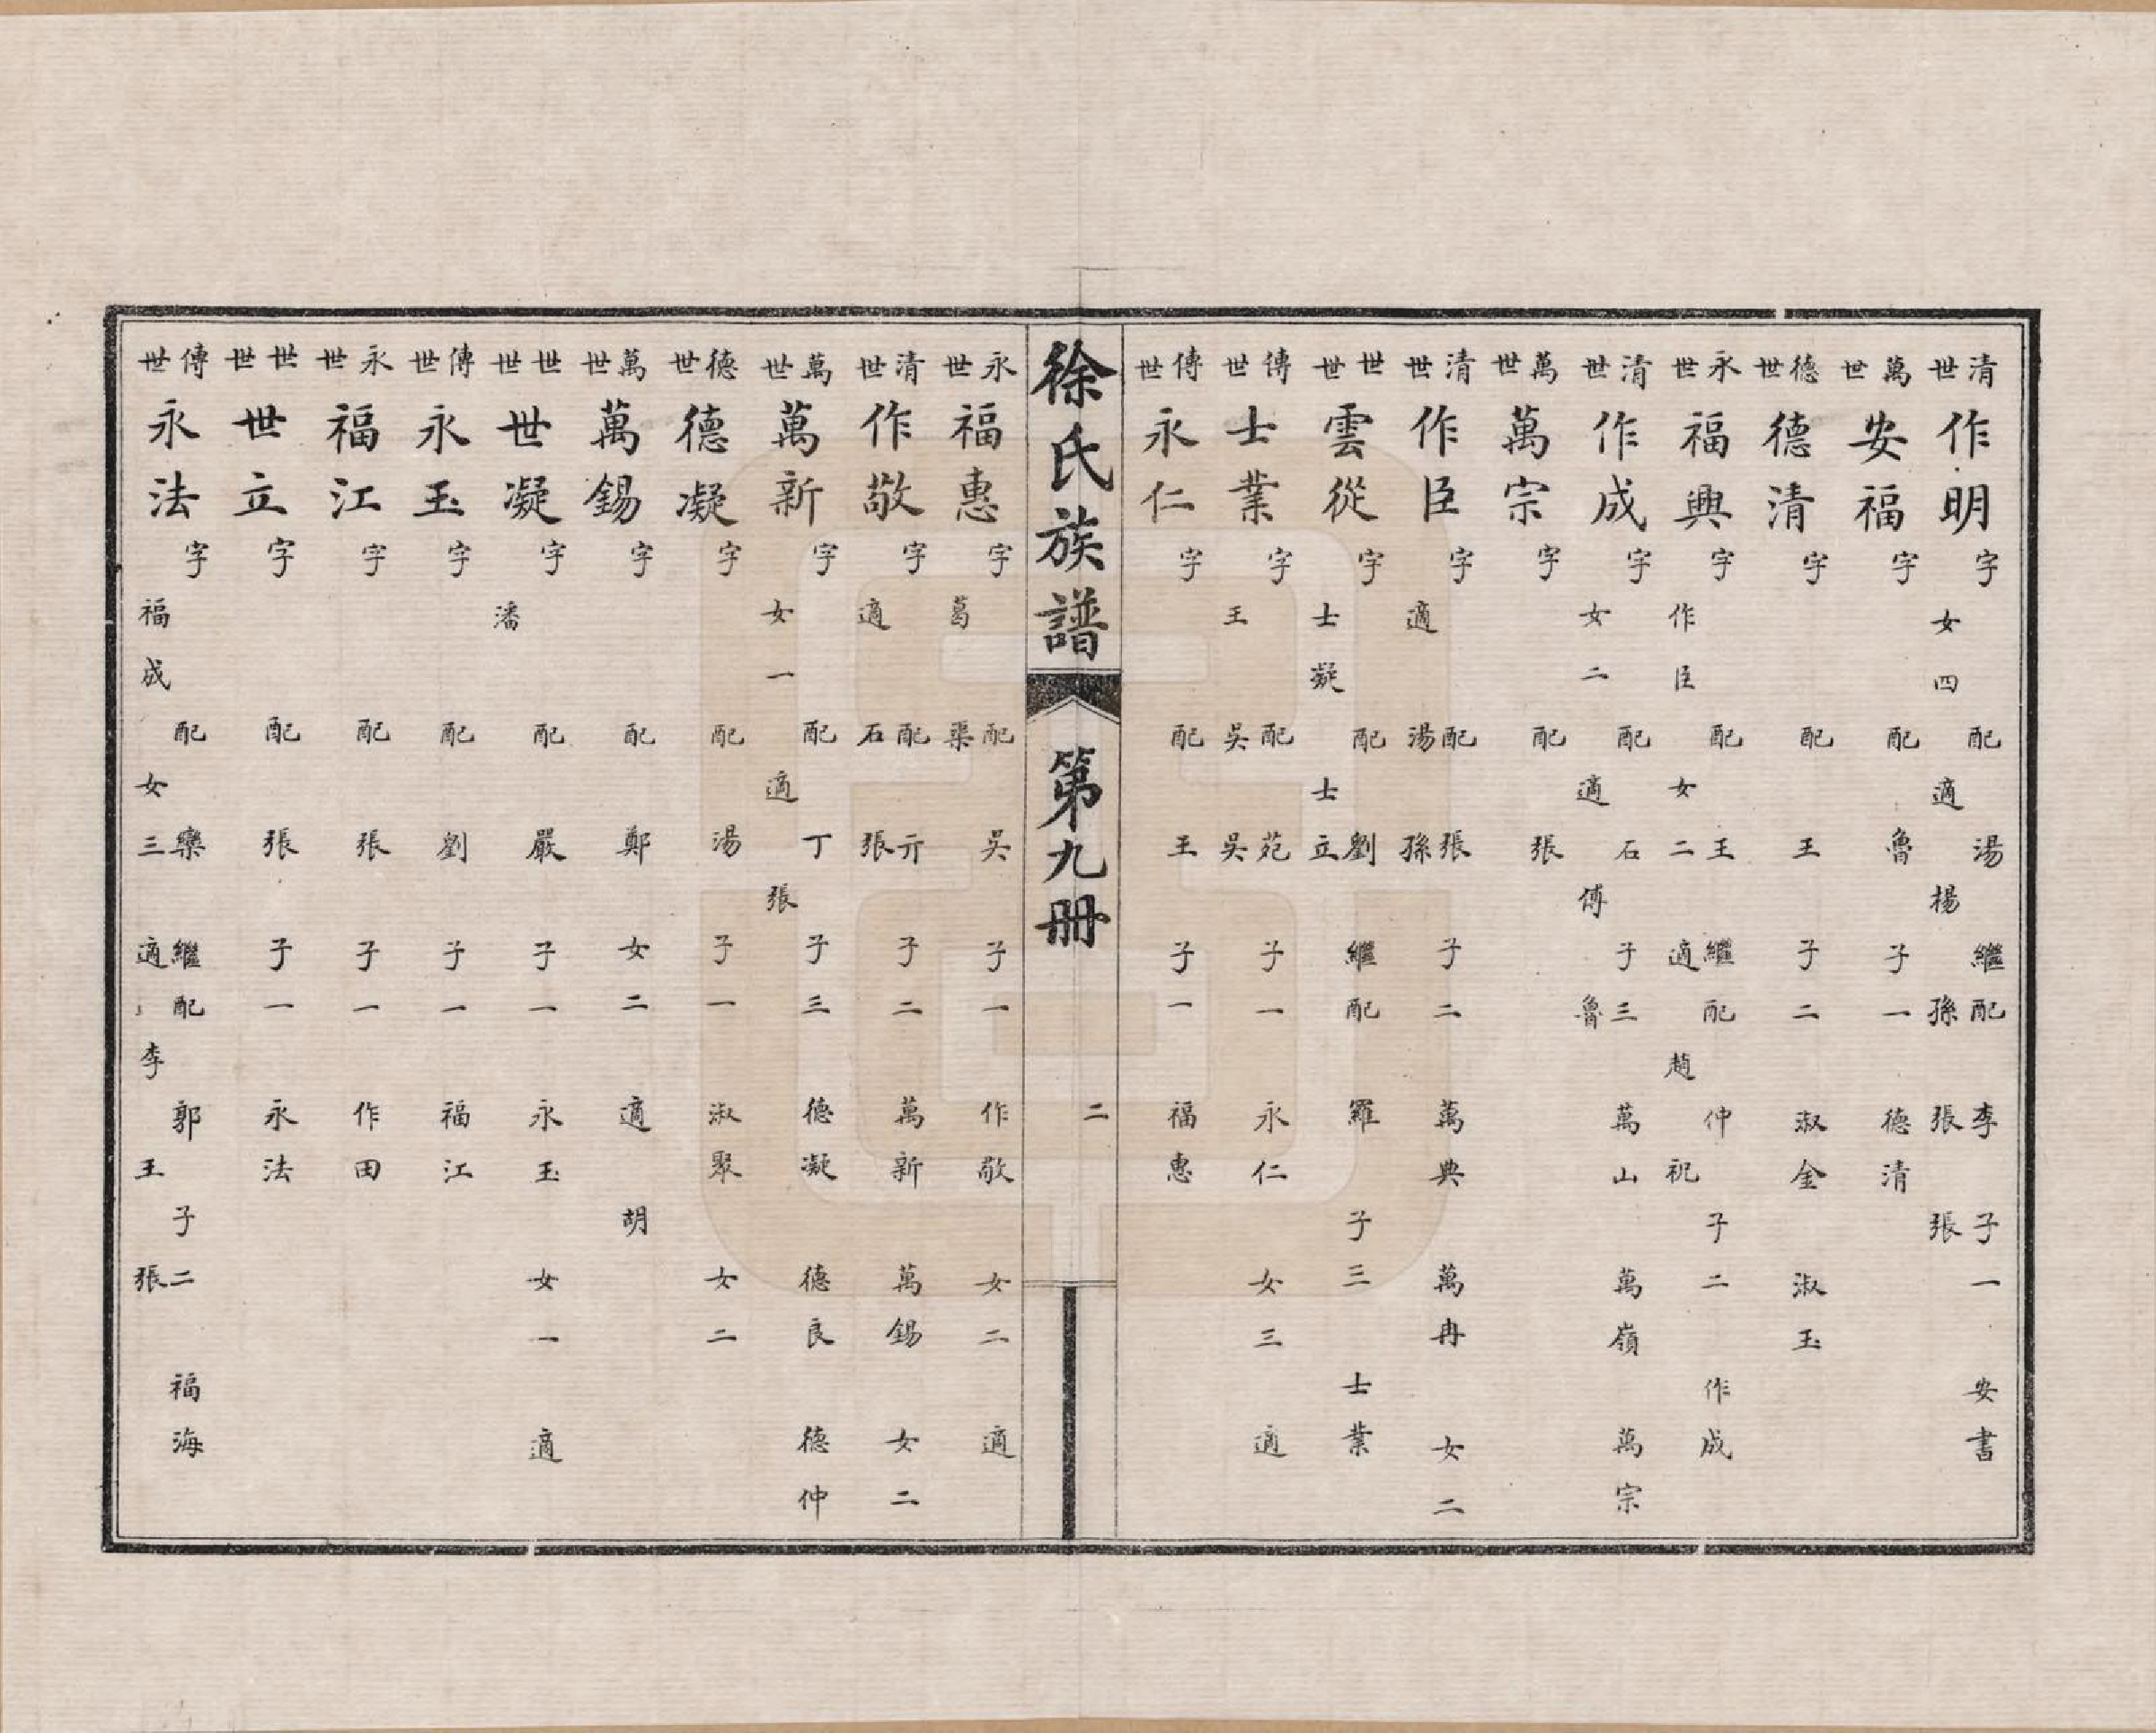 清世作明字配湯繼配李子一安書
女四適楊孫張張
萬世安福字配魯子一德清
德世德清字配王子二淑金淑玉
永世福興字配王繼配仲子二作成
作臣女二適趙祝
清世作成字配石子三萬山萬嶺萬宗
女二適傅魯
萬世萬宗字配張
清世作臣字配張子二萬典萬冉女二
適湯孫
世世雲從字配劉繼配羅子三士業
士凝士立
傳世士業字配苑子一永仁女三適
王吳吳
傳世永仁字配王子一福惠
徐氏族譜第九册二
永世福惠字配吳子一作敬女二適
葛渠
清世作敬字配亓子二萬新萬錫女二
適石張
萬世萬新字配丁子三德凝德良德仲
女一適張
德世德凝字配湯子一淑聚女二
萬世萬錫字配鄭女二適胡
世世世凝字配嚴子一永玉女一適
潘
傳世永玉字配劉子一福江
永世福江字配張子一作田
世世世立字配張子一永法
傳世永法字配欒繼配郭子二福海
福成女三適李王張